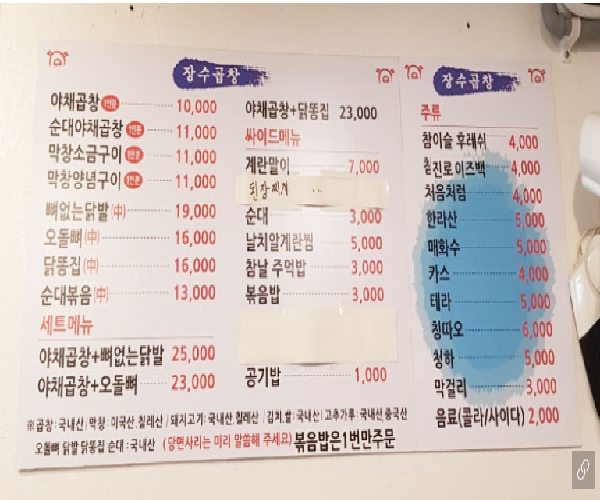 장수곱창
야채곱창 1인분 10,000
순대야채곱창 1인분 11,000
막창소금구이 1인분 11,000
막창양념구이 1인분 11,000
뼈없는닭발(中) 19,000
오돌뼈(中) 16,000
닭똥집(中) 16,000
순대볶음(中) 13,000
세트메뉴
야채곱창+뼈없는닭발 25,000
야채곱창+오돌뼈 23,000
야채곱창+닭똥집 23,000
싸이드메뉴
계란말이 7,000
된장찌개 ...
순대 3,000
날치알계란찜 5,000
참날 주먹밥 3,000
볶음밥 3,000
공기밥 1,000
※곱창:국내산/막창:미국산,칠레산/돼지고기:국내산,칠레산/김치,쌀:국내산/고추가루:국내산,중국산
오돌뼈 닭발 닭똥집 순대:국내산 (당면사리는 미리 말씀해 주세요) 볶음밥은1번만주문
장수곱창
주류
참이슬 후레쉬 4,000
진로이즈백 4,000
처음처럼 4,000
한라산 5,000
매화수 5,000
카스 4,000
테라 5,000
칭따오 6,000
청하 5,000
막걸리 3,000
음료(콜라/사이다) 2,000